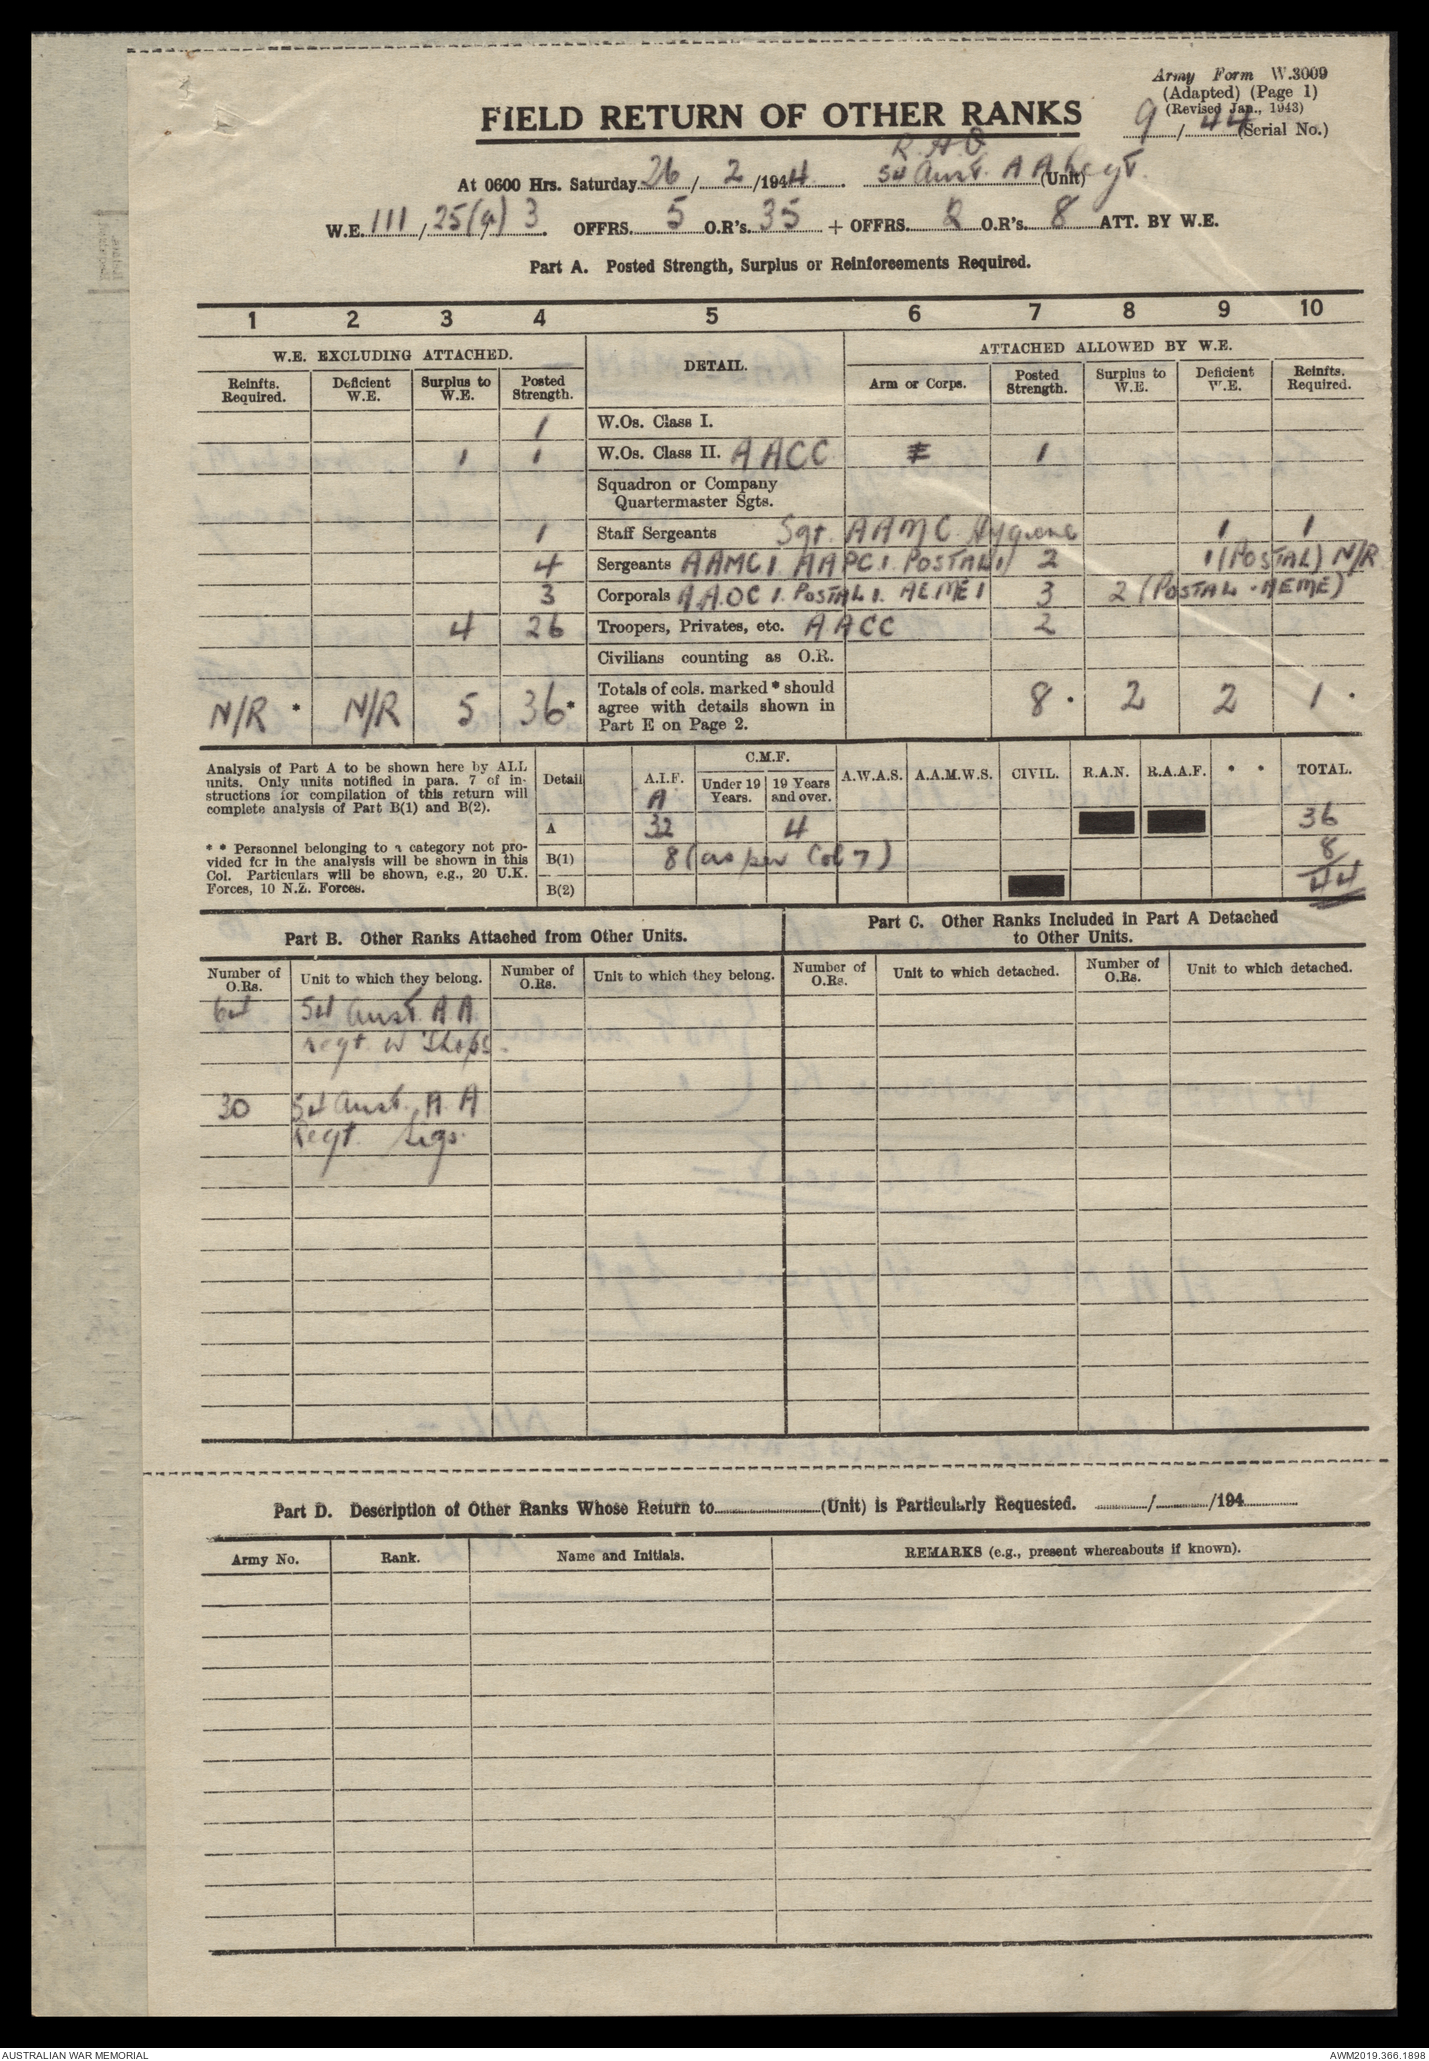 Army Form W.3009
(Adapted) (Page 1)
(Revised Jan., 1943)
9 / 44 (Serial No.)
FIELD RETURN OF OTHER RANKS
R.H.Q.
At 0600 Hrs. Saturday 26 / 2 /1944. 54 Aust. A A Regt. (Unit)
W.E. 111 / 25(a) / 3. OFFRS. 5 O.R's. 35 + OFFRS. 2 O.R's. 8 ATT. BY W.E.
Part A. Posted Strength, Surplus or Reinforcements Required.
1 2 3 4 5 6 7 8 9 10
W.E. EXCLUDING ATTACHED. DETAIL. ATTACHED ALLOWED BY W.E.
Reinfts. Required. Deficient W.E. Surplus to W.E. Posted Strength. Arm or Corps. Posted Strength. Surplus to W.E. Deficient W.E. Reinfts. Required.
1 W.Os. Class I.
1 1 W.Os. Class II. AACC 1
Squadron or Company
Quartermaster Sgts.
1 Staff Sergeants Sgt. AAMC Hygiene 1 1
4 Sergeants AAMC 1. AAPC 1. POSTAL 1) 2 1 (POSTAL) N/R
3 Corporals AAOC 1. POSTAL 1. AEME 1 3 2 (POSTAL - AEME)
4 26 Troopers, Privates, etc. AACC 2
Civilians counting as O.R.
N/R * N/R 5 36* Totals of cols. marked * should
agree with details shown in
Part E on Page 2. 8 . 2 2 1 .
Analysis of Part A to be shown here by ALL
units. Only units notified in para. 7 of in-
structions for compilation of this return will
complete analysis of Part B(1) and B(2).
* * Personnel belonging to a category not pro-
vided for in the analysis will be shown in this
Col. Particulars will be shown, e.g., 20 U.K.
Forces, 10 N.Z. Forces.
Detail A.I.F. C.M.F. Under 19 Years. 19 Years and over. A.W.A.S. A.A.M.W.S. CIVIL. R.A.N. R.A.A.F. * * TOTAL.
A
A 32 4 36
B(1) 8 (as per Col 7) 8
B(2) 44
Part B. Other Ranks Attached from Other Units.
Part C. Other Ranks Included in Part A Detached
to Other Units.
Number of O.Rs. Unit to which they belong. Number of O.Rs. Unit to which they belong. Number of O.Rs. Unit to which detached. Number of O.Rs. Unit to which detached.
64 54 Aust. A A
Regt. W'Shops.
30 54 Aust. A. A
Regt. Sigs.
Part D. Description of Other Ranks Whose Return to (Unit) is Particularly Requested. / /194
Army No. Rank. Name and Initials. REMARKS (e.g., present whereabouts if known).
AUSTRALIAN WAR MEMORIAL
AWM2019.366.1898